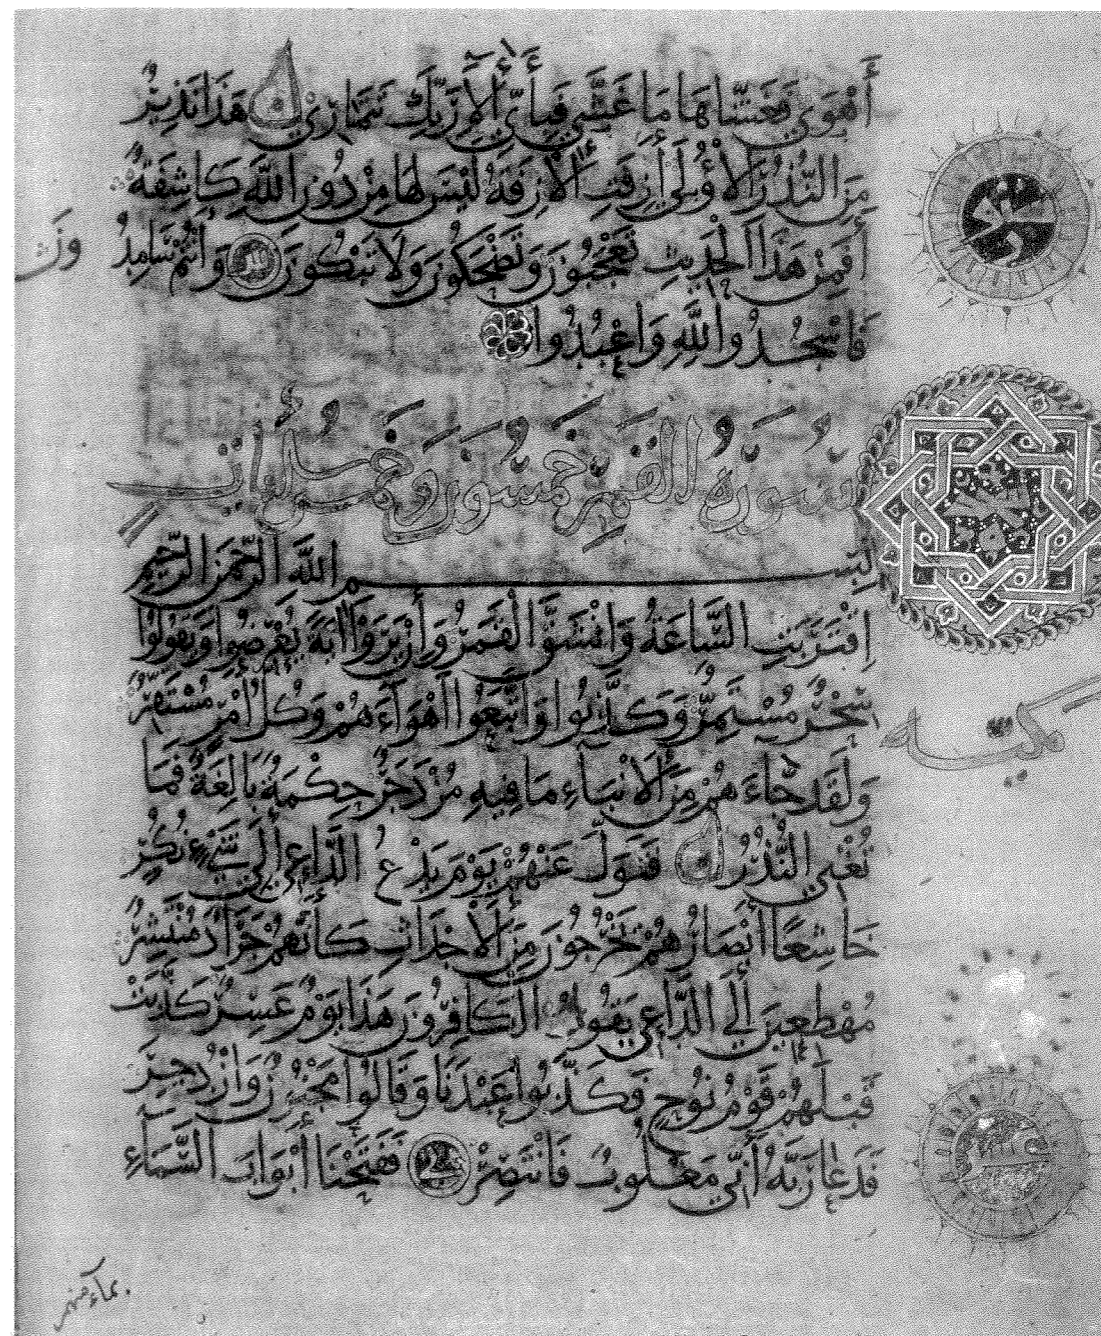 أَهْوَي فَغَشَّاهَا مَا غَشَّي فَبِأَيِّ أَلَاءِ رَبِّكَ تَتَمَارَي هَذَا نَذِيرٌ
مِنَ النُّذُرِ الْأُولَي أَزِفَتِ الْأَزِفَةُ لَيْسَ لَهَا مِنْ دُونِ اللَّهِ كَاشِفَةٌ
أَفَمِنْ هَذَا الْحَدِيثِ تَعْجَبُونَ وَتَضْحَكُونَ وَلَا تَبْكُونَ وَأَنْتُمْ سَامِدُ
ونَ
فَاسْجُدُوا لِلَّهِ وَاعْبُدُوا
سُورَةُ الْقَمَرِ خَمْسُونَ وَخَمْسُ أٰيَاتٍ
بِسْمِ اللَّهِ الرَّحْمَنِ الرَّحِيمِ
اِقْتَرَبَتِ السَّاعَةُ وَانْشَقَّ الْقَمَرُ وَإِنْ يَرَوْا اٰيَةً يُعْرِضُوا وَيَقُولُوا
مكية
سِحْرٌ مُسْتَمِرٌّ وَكَذَّبُوا وَاتَّبَعُوا أَهْوَاءَهُمْ وَكُلُّ أَمْرٍ مُسْتَقِرٌّ
وَلَقَدْ جَاءَهُمْ مِنَ الْأَنْبَاءِ مَا فِيهِ مُزْدَجَرٌ حِكْمَةٌ بَالِغَةٌ فَمَا
تُغْنِي النُّذُرُ فَتَوَلَّ عَنْهُمْ يَوْمَ يَدْعُ الدَّاعِي إِلَي شَيْءٍ نُكُرٍ
خَاشِعًا أَبْصَارُهُمْ يَخْرُجُونَ مِنَ الْأَجْدَاثِ كَأَنَّهُمْ جَرَادٌ مُنْتَشِرٌ
مُهْطِعِينَ إِلَي الدَّاعِي يَقُولُ الْكَافِرُونَ هَذَا يَوْمٌ عَسِرٌ كَذَّبَتْ
قَبْلَهُمْ قَوْمُ نُوحٍ فَكَذَّبُوا عَبْدَنَا وَقَالُوا مَجْنُونٌ وَازْدُجِرَ
فَدَعَا رَبَّهُ أَنِّي مَغْلُوبٌ فَانْتَصِرْ فَفَتَحْنَا أَبْوَابَ السَّمَاءِ
بماء منهمر